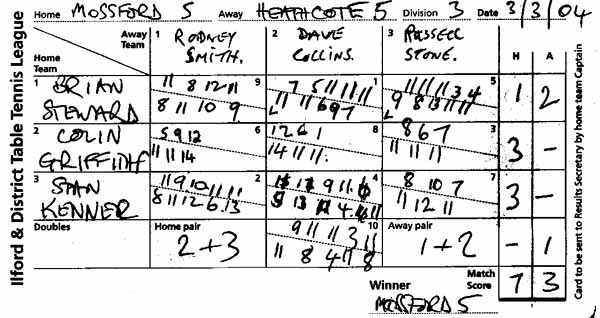 Home MOSSFORD 5 Away HEATHCOTE 5 Division 3 Date 3/3/04
Ilford & District Table Tennis League
Away Team
Home Team
1 RODNEY SMITH.
2 DAVE COLLINS.
3 RUSSELL STONE.
H A
1 BRIAN STEWARD
11 8 12 11 9
8 11 10 9
7 5 11 11 11 1
L 11 11 6 9 7
11 11 11 3 4 5
L 9 8 13 11 11
1 2
2 COLIN GRIFFITH
5 9 12 6
11 11 14
12 6 1 8
14 11 11.
8 6 7 3
11 11 11
3 -
3 STAN KENNER
11 9 10 11 11 2
8 11 12 6 13
9 11 4
8 10 7 7
11 12 11
3 -
Doubles
Home pair
2+3
10
9 11 11 3 11
11 8 4 11 8
Away pair
1+2
- 1
Winner
MOSSFORD 5
Match Score
7 3
Card to be sent to Results Secretary by home team Captain